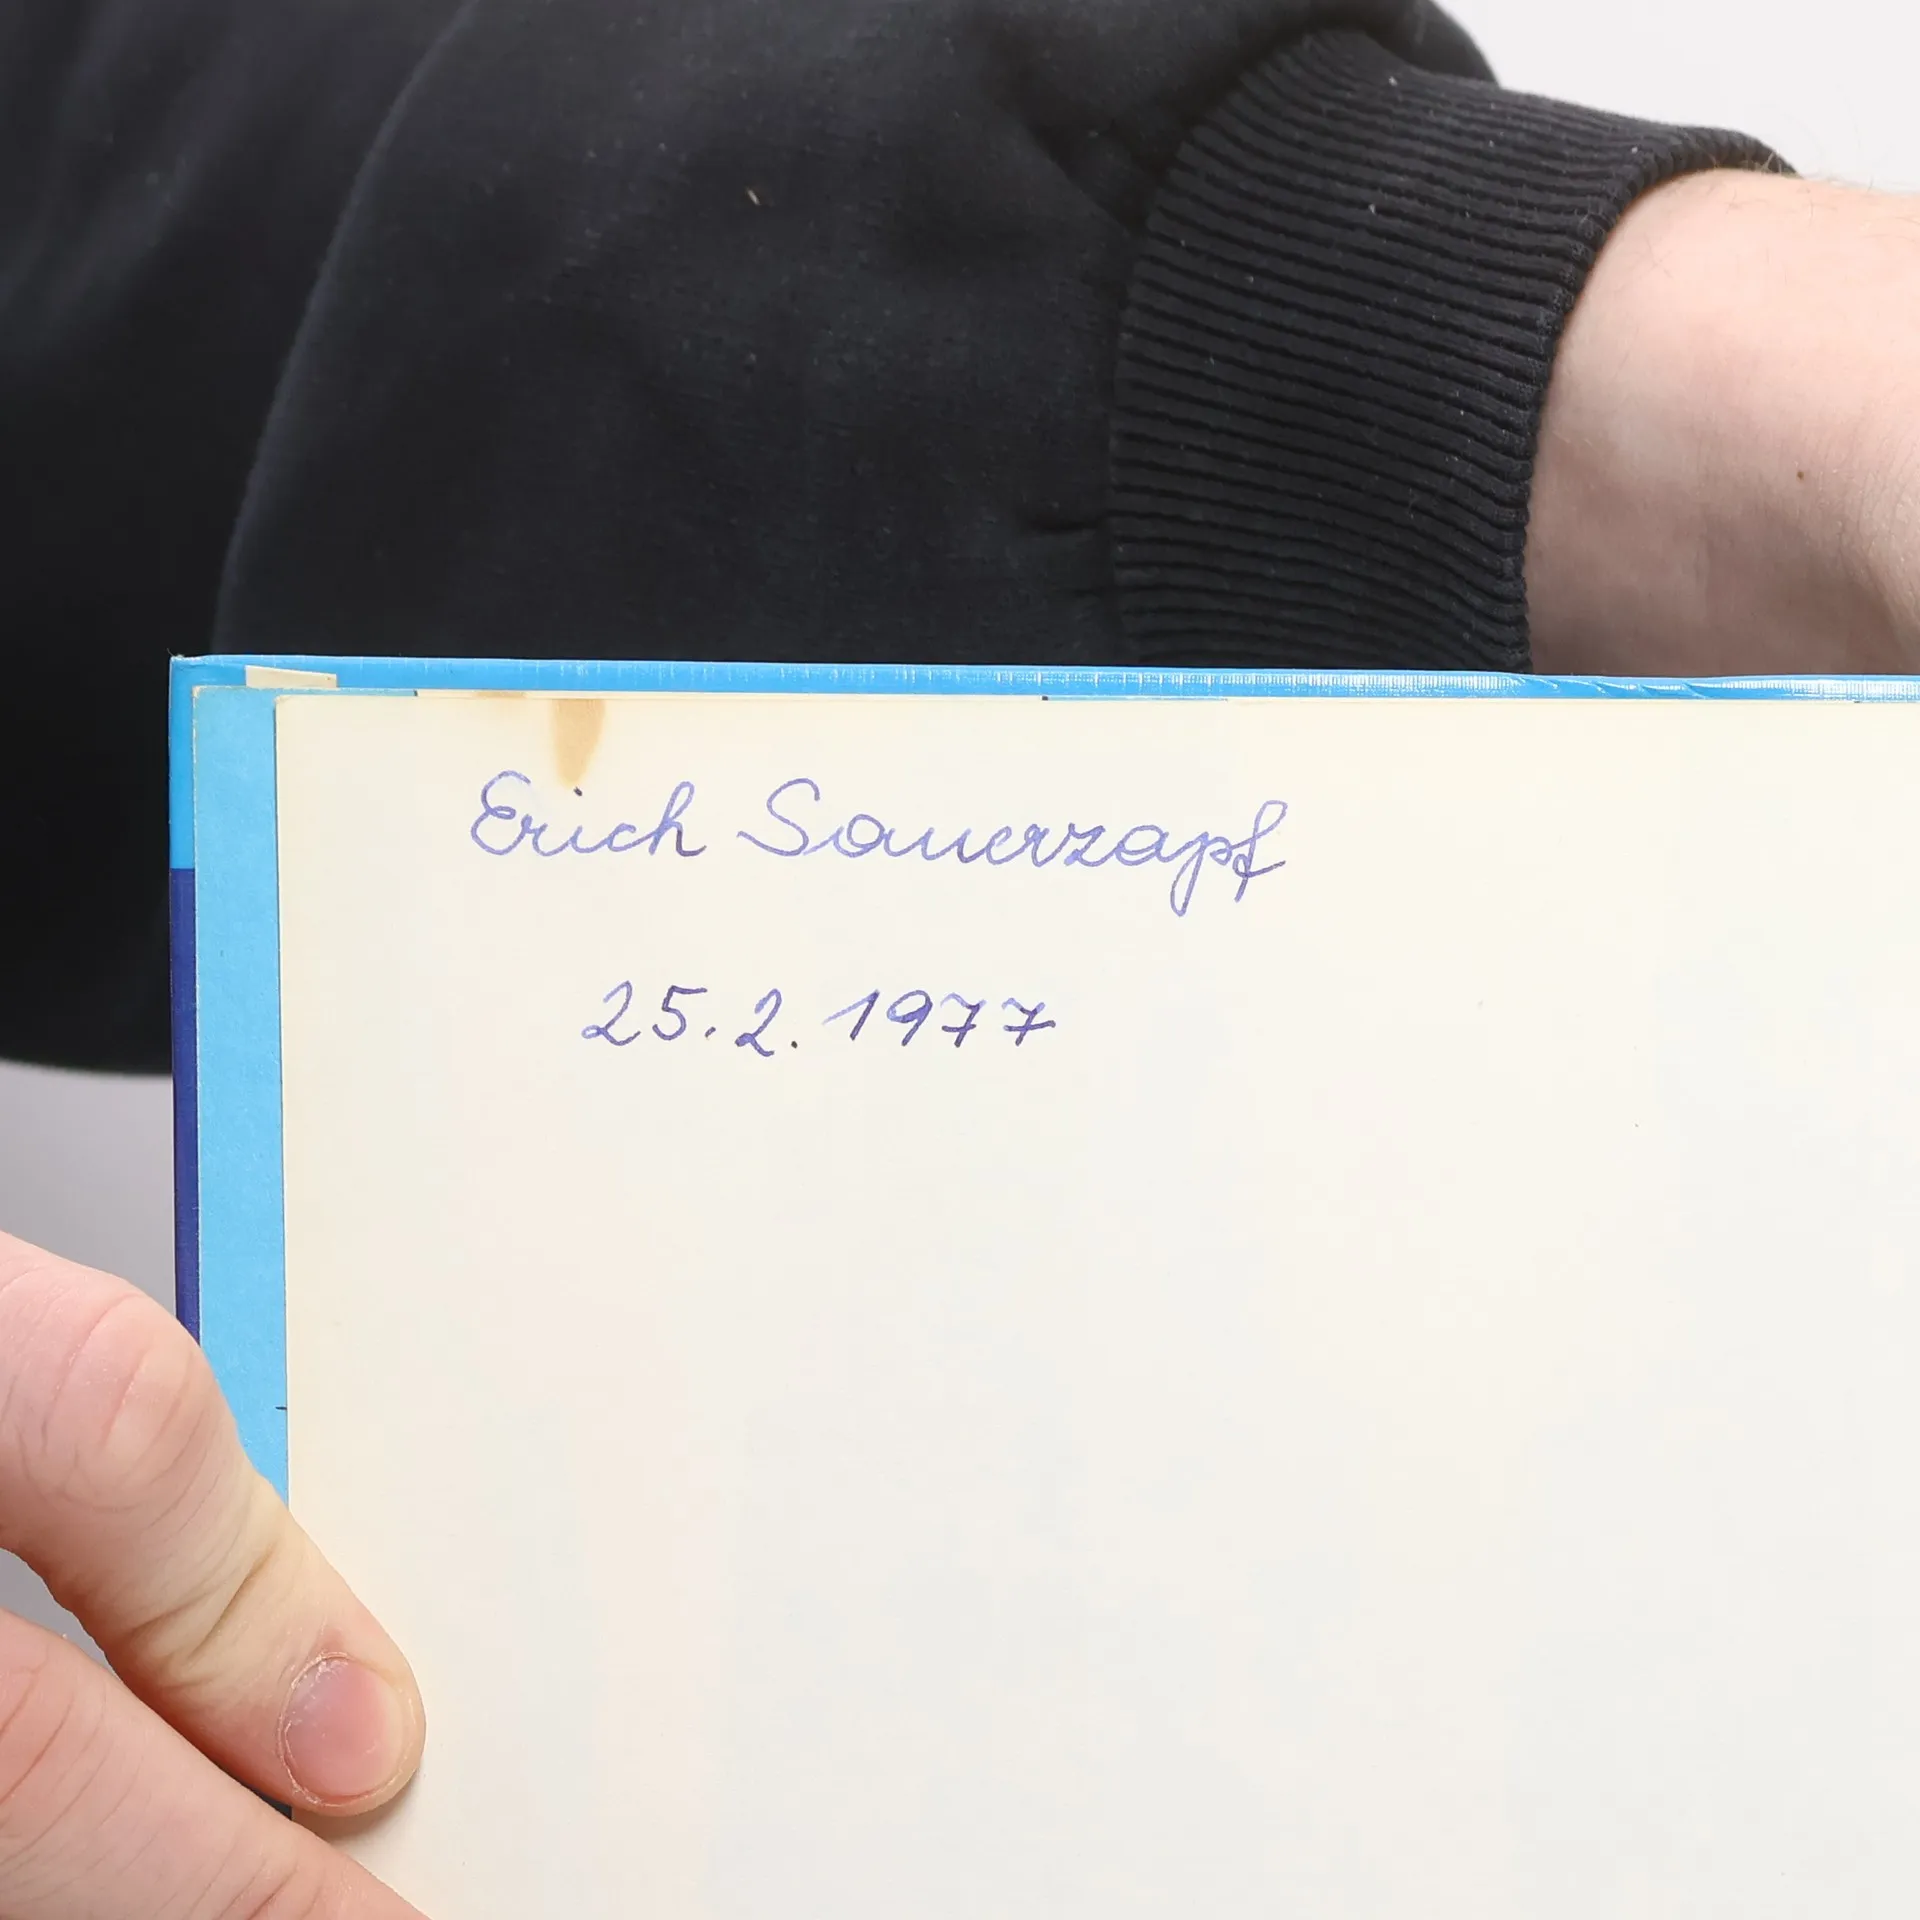 Erich Sauerzapf
25.2.1977